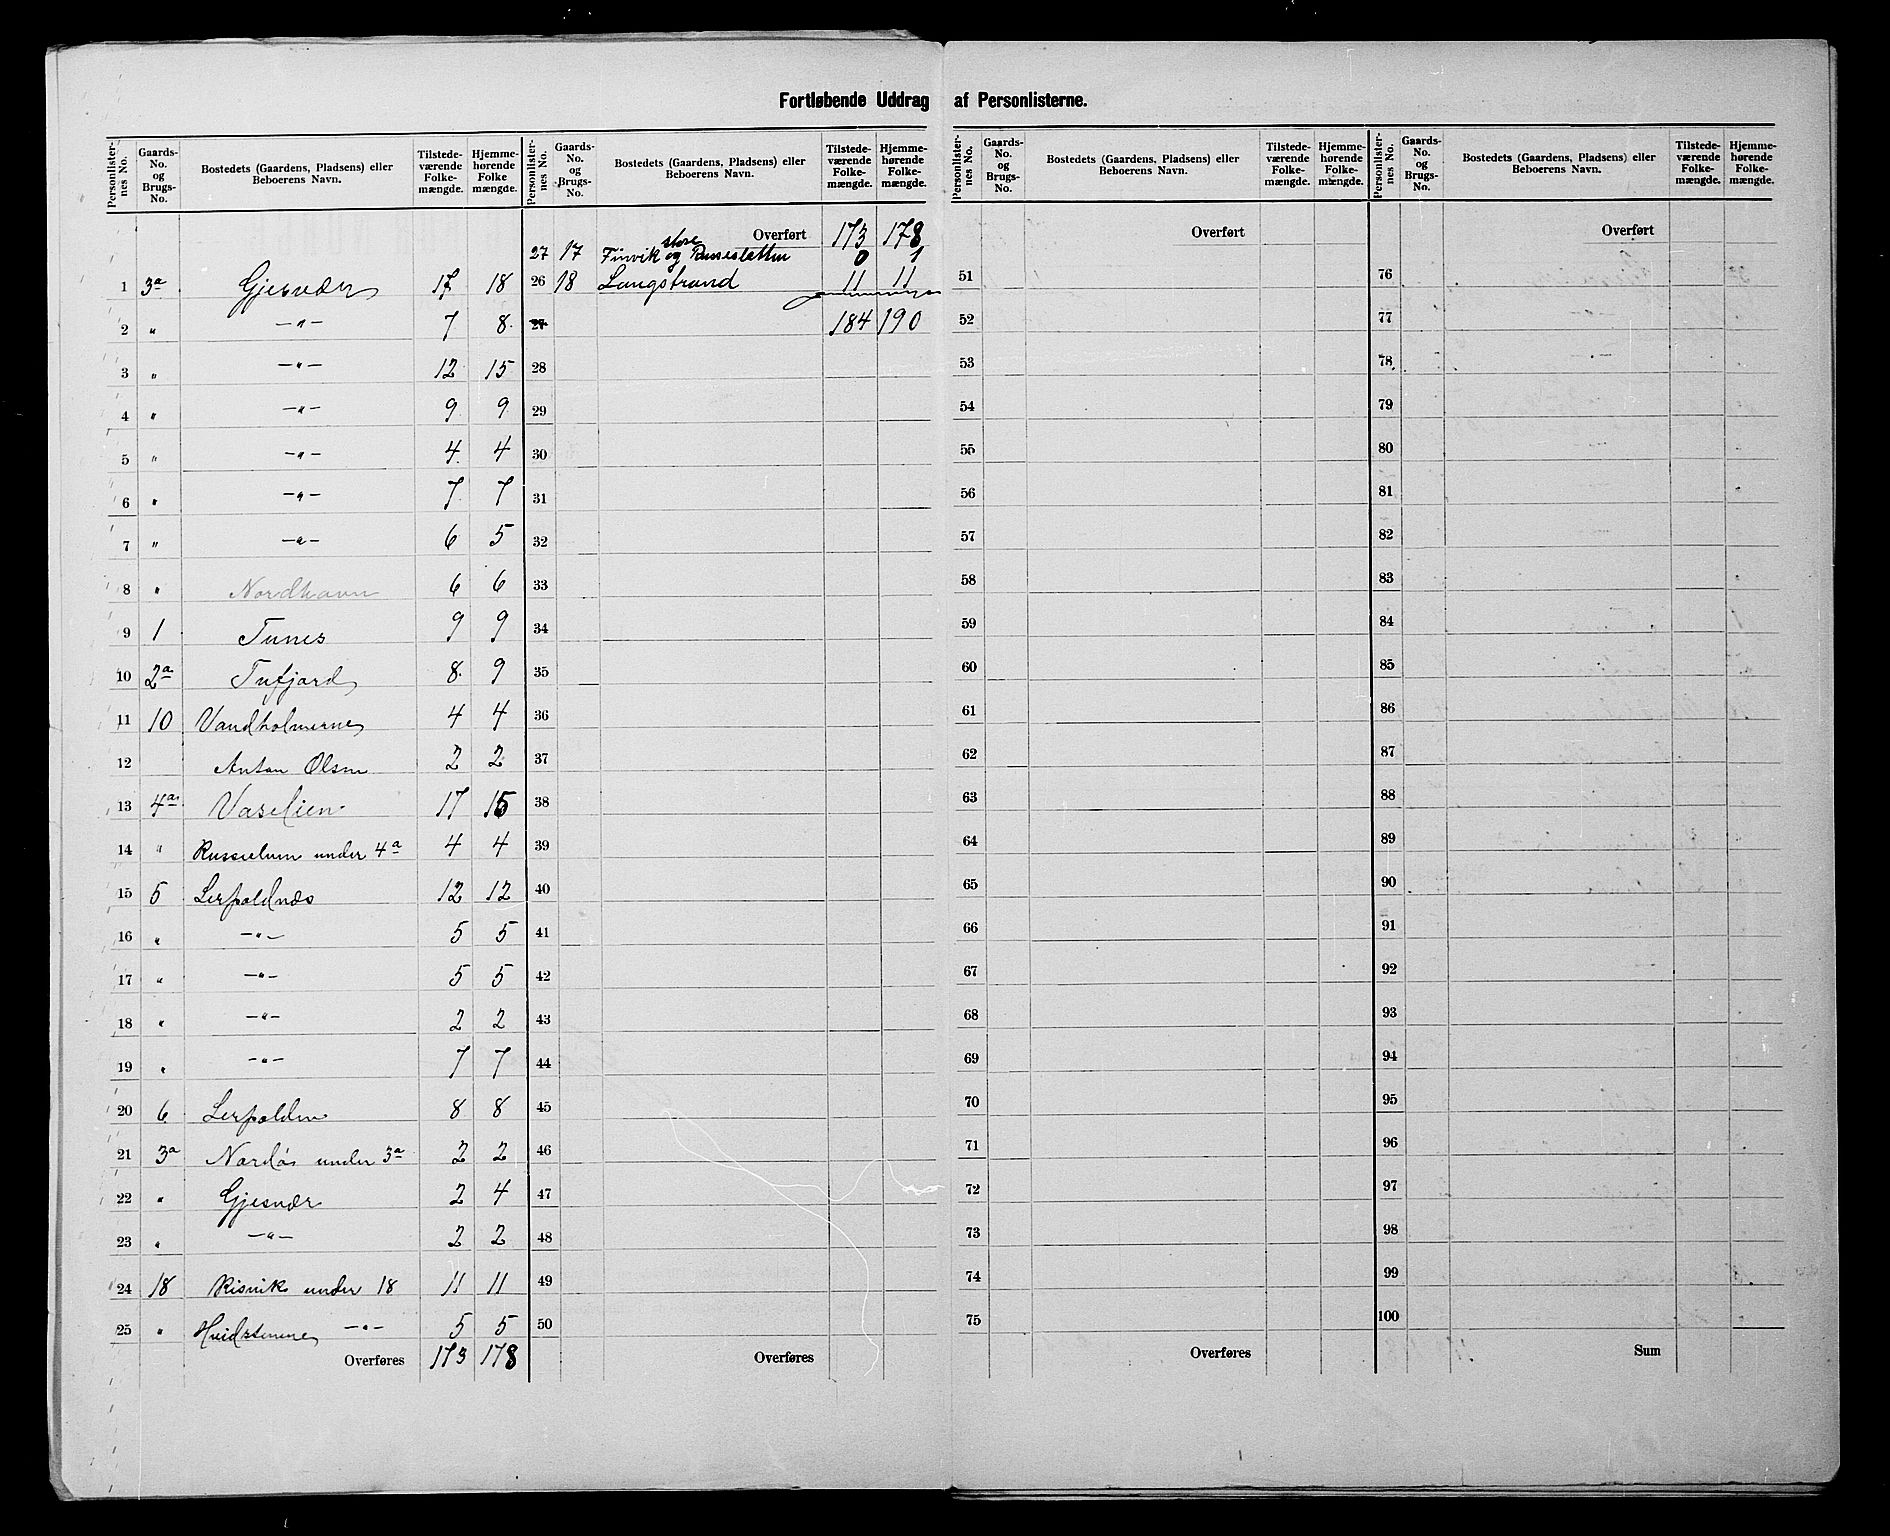 Fortløbende Uddrag af Personlisterne.
Personlister-nes No. Gaards-No. og Brugs-No. Bostedets (Gaardens, Pladsens) eller Beboerens Navn. Tilstede-værende Folke-mængde. Hjemme-hørende Folke mængde.
1 3a Gjesvær 17 18
2 " —"— 7 8
3 " —"— 12 15
4 " —"— 9 9
5 " —"— 4 4
6 " —"— 7 7
7 " —"— 6 5
8 " Nordhavn 6 6
9 1 Tunes 9 9
10 2a Tufjord 8 9
11 10 Vandholmerne 4 4
12 Anton Olsen 2 2
13 4a Vaselien 17 15
14 " under 4a 4 4
15 5 Lerpoldnæs 12 12
16 " —"— 5 5
17 " —"— 5 5
18 " —"— 2 2
19 " —"— 7 7
20 6 Lerpolden 8 8
21 3a Nordås under 3a 2 2
22 " Gjesvær 2 4
23 " —"— 2 2
24 18 Risvik under 18 11 11
25 " Hvidstenene —"— 5 5
Overføres 173 178
Personlister-nes No. Gaards-No. og Brugs-No. Bostedets (Gaardens, Pladsens) eller Beboerens Navn. Tilstede-værende Folke-mængde. Hjemme-hørende Folke-mængde.
Overført 173 178
store
27 17 Finvik og 0 1
26 18 Langstrand 11 11
27 184 190
28
29
30
31
32
33
34
35
36
37
38
39
40
41
42
43
44
45
46
47
48
49
50
Overføres
Personlister-nes No. Gaards-No. og Brugs-No. Bostedets (Gaardens, Pladsens) eller Beboerens Navn. Tilstede-værende Folke-mængde. Hjemme-hørende Folke-mængde.
Overført
51
52
53
54
55
56
57
58
59
60
61
62
63
64
65
66
67
68
69
70
71
72
73
74
75
Overføres
Personlister-nes No. Gaards-No. og Brugs-No. Bostedets (Gaardens, Pladsens) eller Beboerens Navn. Tilstede-værende Folke-mængde. Hjemme-hørende Folke-mængde.
Overført
76
77
78
79
80
81
82
83
84
85
86
87
88
89
90
91
92
93
94
95
96
97
98
99
100
Sum